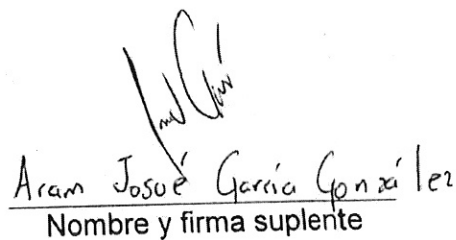 Aram Josué García González
Nombre y firma suplente